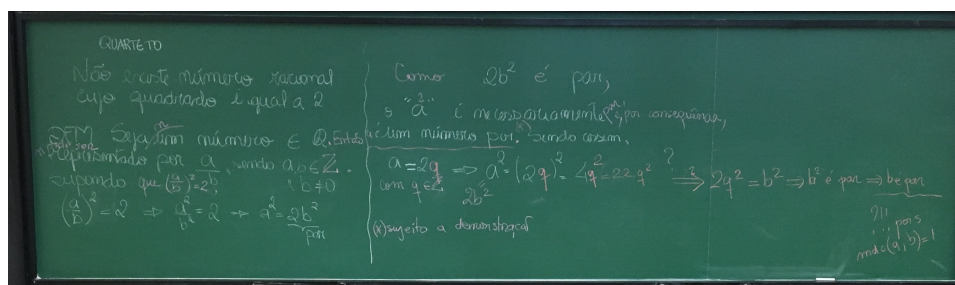 QUARTETO
Não existe número racional
cujo quadrado é igual a 2
DEM Seja um número n ∈ Q. Então
representado por a/b, sendo a,b ∈ Z.
supondo que (a/b)² = 2 b≠0
(a/b)² = 2 ⇒ a²/b² = 2 ⇒ a² = 2b²
par
Como 2b² é par,
"a²" é necessariamente par, e, por consequência,
a é um número par.(*) Sendo assim,
a = 2q ⇒ a² = (2q)² = 4q² = 2·2q² ⇒ 2q² = b² ⇒ b² é par ⇒ b é par
com q ∈ Z
2b²
(*) sujeito a demonstração
?!! pois
mdc(a,b)=1